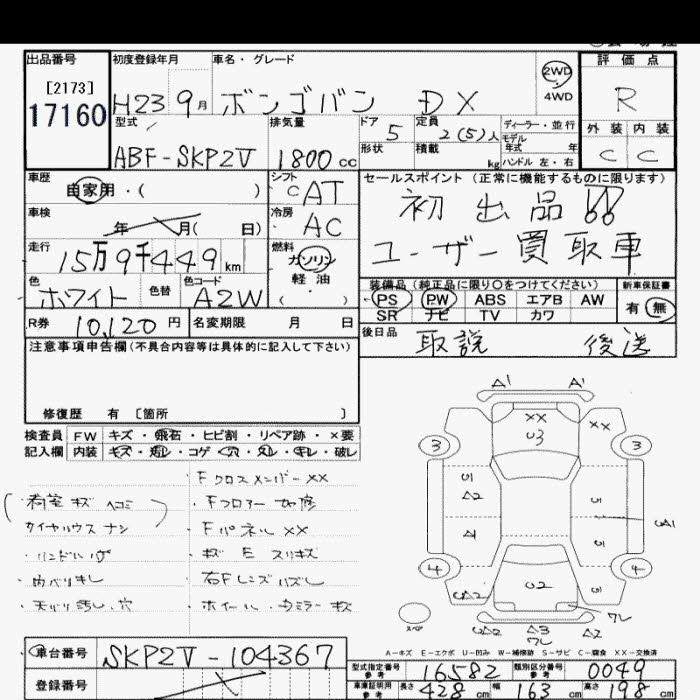 出品番号 初度登録年月 車名・グレード 評価点
[2173]
17160
H23 9月 ボンゴバン DX 2WD 4WD R
型式 排気量 ドア 5 定員 2(5)人 ディーラー・並行
モデル年式 年
外装 内装
ABF-SKP2V 1800cc 形状 積載 kg ハンドル 左・右 C C
車歴 シフト セールスポイント(正常に機能するものに限ります)
自家用・( ) CAT 初出品!!
車検 冷房
年 月( 日) AC ユーザー買取車
走行 燃料
15万9千449km ガソリン
軽油
( )
色 色替 色コード 装備品(純正品に限り○をつけてください) 新車保証書
ホワイト A2W PS PW ABS エアB AW 有・無
SR ナビ TV カワ
R券 10,120円 名変期限 月 日 後日品 取説 後送
注意事項申告欄(不具合内容等は具体的に記入して下さい)
修復歴 有 〔箇所 〕
検査員 FW キズ・飛石・ヒビ割・リペア跡・×要
記入欄 内装 キズ・汚レ・コゲ・穴・タレ・キレ・破レ
Fクロスメンバー××
荷室キズ ヘコミ Fフロアー
タイヤハウス ナシ Fパネル××
キズ E スリキズ
右Fレンズハズレ
ホイール・
A1 A1
×× ××
U3
3 3
U1
A2
A1
4 4
U2
A2 A3 A2
A-キズ E-エクボ U-凹み W-補修跡 S-サビ C-腐食 ××-交換済
車台番号 SKP2V-104367
型式指定番号 参考 16582 類別区分番号 参考 0049
登録番号
車庫証明用 参考 長さ 428cm 幅 163cm 高さ 198cm